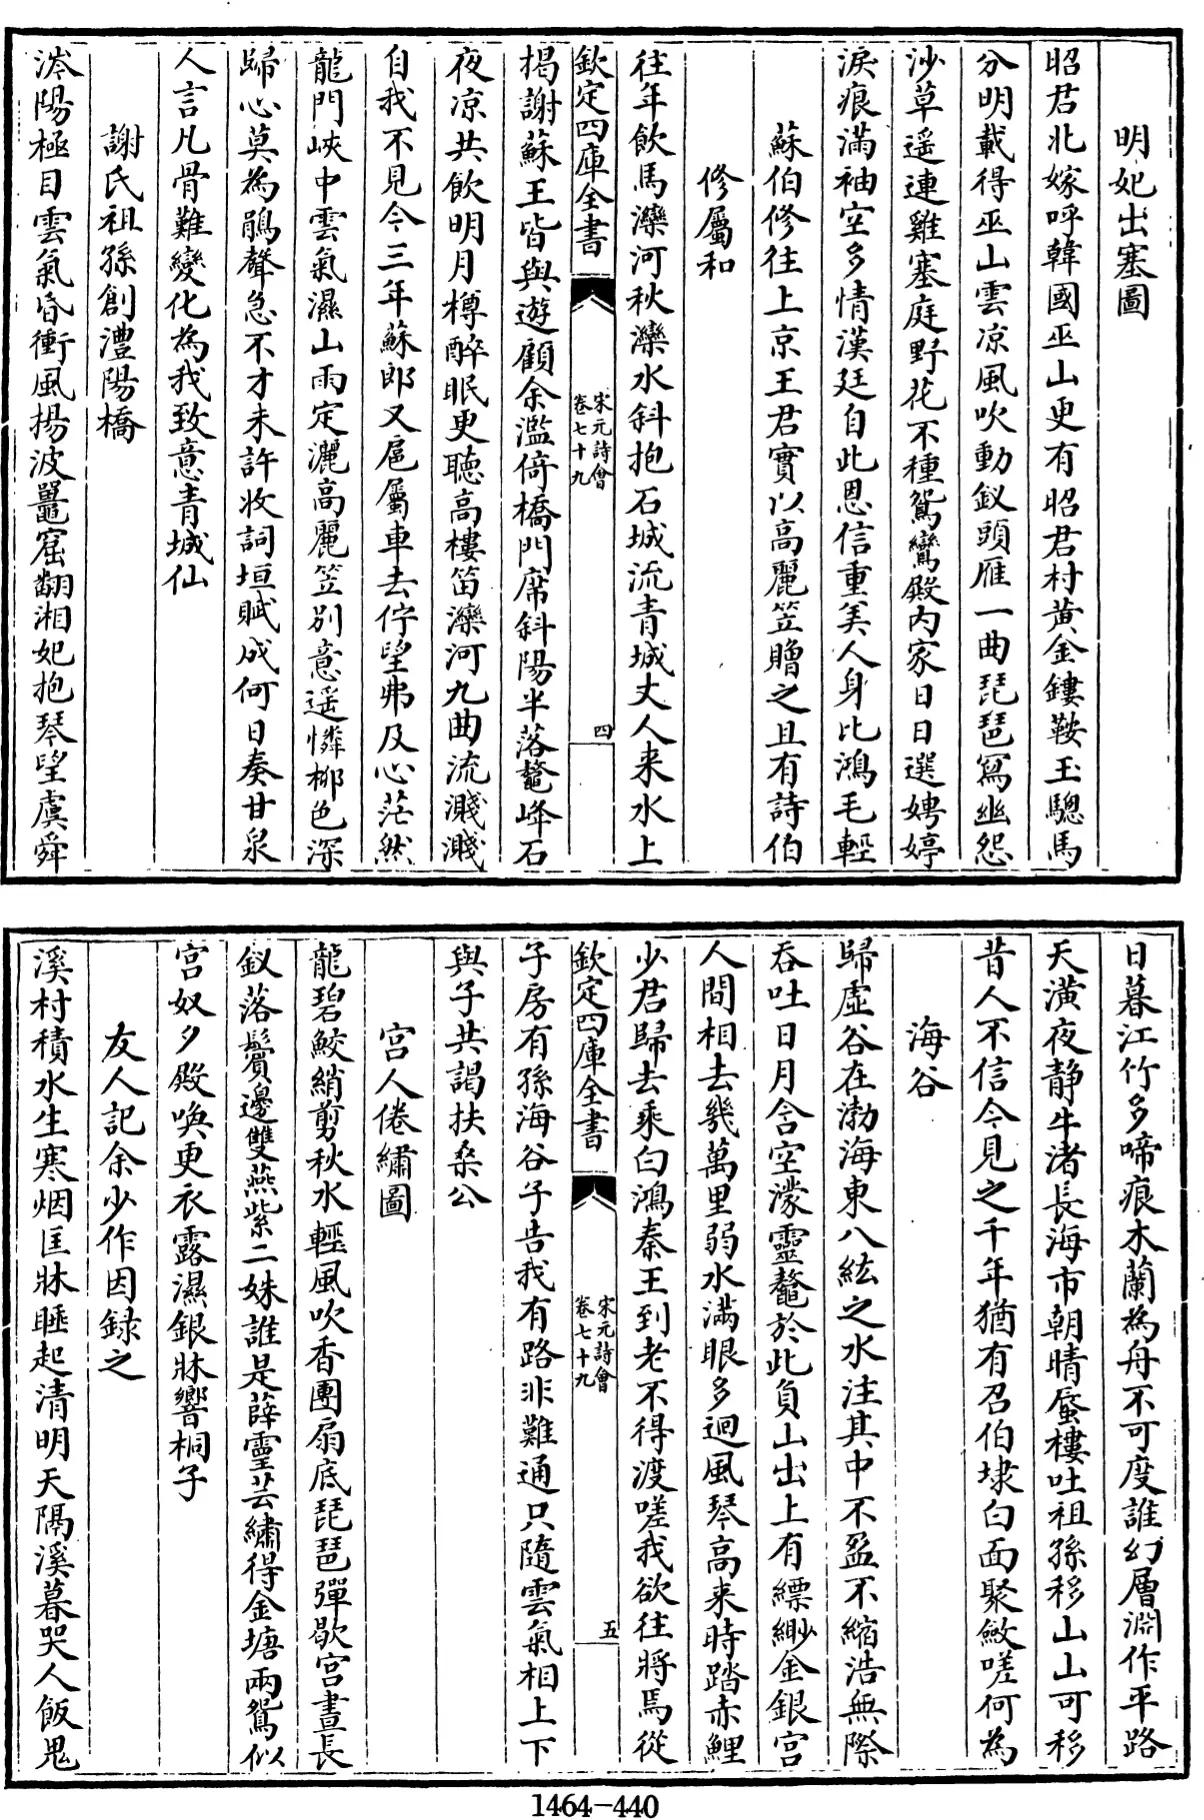 明妃出塞圖
昭君北嫁呼韓國巫山更有昭君村黄金鏤鞍玉驄馬
分明載得巫山雲凉風吹動釵頭雁一曲琵琶寫幽怨
沙草遥連雞塞庭野花不種鴛鸞殿内家日日選娉婷
淚痕滿袖空多情漢廷自此恩信重美人身比鴻毛輕
蘇伯修往上京王君實以高麗笠贈之且有詩伯
修屬和
往年飲馬灤河秋灤水斜抱石城流青城丈人来水上
欽定四庫全書
宋元詩會
卷七十九
四
揭謝蘇王皆與遊顧余濫倚橋門席斜陽半落鼇峰石
夜凉共飲明月樽醉眠更聴高樓笛灤河九曲流濺濺
自我不見今三年蘇郎又扈屬車去佇望弗及心茫然
龍門峽中雲氣濕山雨定灑高麗笠别意遥憐栁色深
歸心莫為鵑聲急不才未許收詞垣賦成何日奏甘泉
人言凡骨難變化為我致意青城仙
謝氏祖孫創澧陽橋
涔陽極目雲氣昏衝風揚波鼉窟翻湘妃抱琴望虞舜
日暮江竹多啼痕木蘭為舟不可度誰幻層淵作平路
天潢夜静牛渚長海市朝晴蜃樓吐祖孫移山山可移
昔人不信今見之千年猶有召伯埭白面聚斂嗟何為
海谷
歸虚谷在渤海東八紘之水注其中不盈不縮浩無際
吞吐日月含空濛靈鼇於此負山出上有縹緲金銀宫
人間相去幾萬里弱水滿眼多迴風琴高来時踏赤鯉
少君歸去乘白鴻秦王到老不得渡嗟我欲往將焉從
欽定四庫全書
宋元詩會
卷七十九
五
子房有孫海谷子告我有路非難通只隨雲氣相上下
與子共謁扶桑公
宫人倦繡圖
龍碧鮫綃剪秋水輕風吹香團扇底琵琶彈歇宫晝長
釵落鬢邊雙燕紫二姝誰是薛靈芸繡得金塘兩鴛似
宫奴夕殿喚更衣露濕銀牀響桐子
友人記余少作因録之
溪村積水生寒烟匡牀睡起清明天隔溪暮哭人飯鬼
1464-440